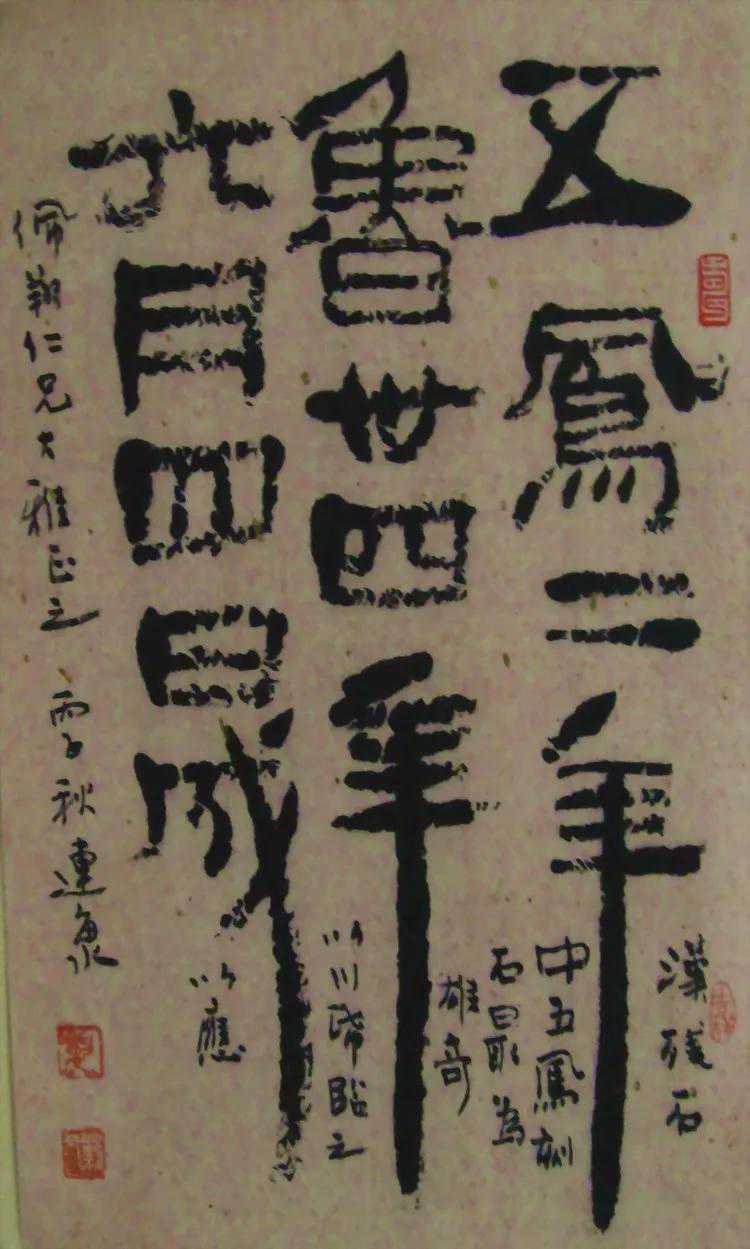 五鳳二年
魯卅四年
六月四日成
漢殘石
中五鳳刻
石最為
雄奇
以川筆臨之
以應
佩翔仁兄大雅正之 丙子秋連